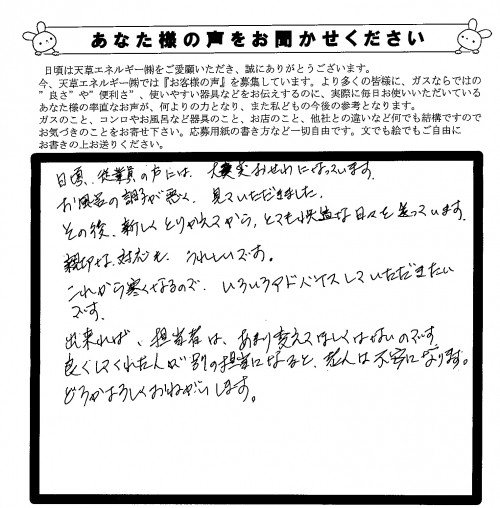 あなた様の声をお聞かせください
日頃は天草エネルギー㈱をご愛顧いただき、誠にありがとうございます。
今、天草エネルギー㈱では『お客様の声』を募集しています。より多くの皆様に、ガスならではの
”良さ”や”便利さ”、使いやすい器具などをお伝えするのに、実際に毎日お使いいただいている
あなた様の率直なお声が、何よりの力となり、また私どもの今後の参考となります。
ガスのこと、コンロやお風呂など器具のこと、お店のこと、他社との違いなど何でも結構ですので
お気づきのことをお寄せ下さい。応募用紙の書き方など一切自由です。文でも絵でもご自由に
お書きの上お送りください。
日頃、従業員の方には、大変お世わになっています。
お風呂の調子が悪く、見ていただきました。
その後、新しくとりかえてから、とても快適な日々を送っています。
親切な対応も、うれしいです。
これから寒くなるので、いろいろアドバイスしていただきたい
です。
出来れば、担当者は、あまり変えてほしくはないのです
良くしてくれた人が別の担当になると、老人は不安になります。
どうかよろしくおねがいします。